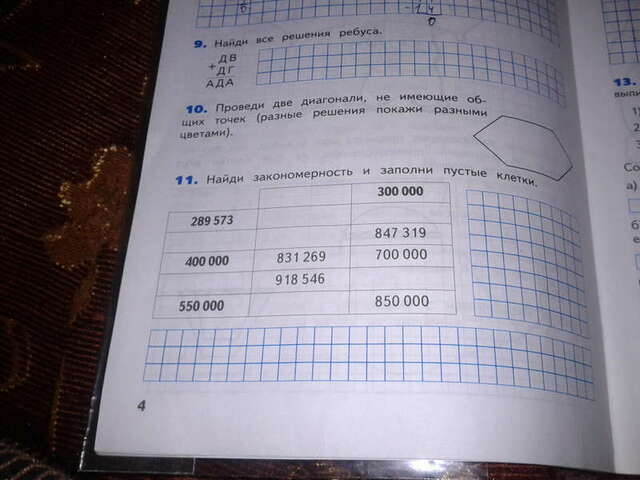 б
- 14
0
9. Найди все решения ребуса.
ДВ
+ ДГ
АДА
10. Проведи две диагонали, не имеющие об-
щих точек (разные решения покажи разными
цветами).
11. Найди закономерность и заполни пустые клетки.
300 000
289 573
847 319
400 000 831 269 700 000
918 546
550 000 850 000
4
13.
1)
2
3
Со
а)
б
е